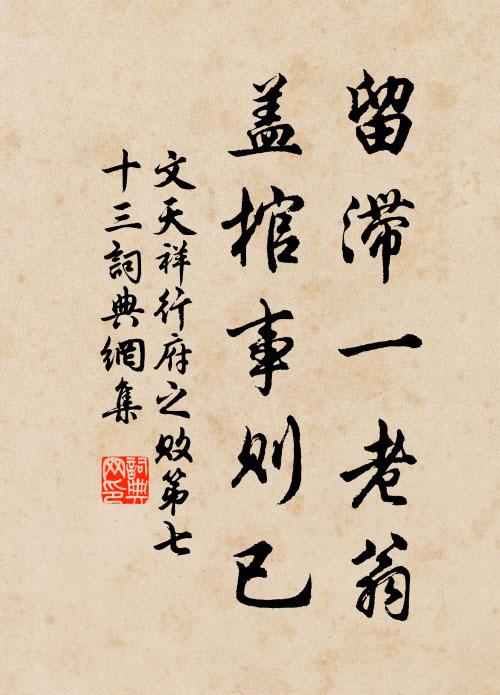 留滞一老翁
盖棺事则已
文天祥行府之败第七
十三詞典網集
詞典
网印